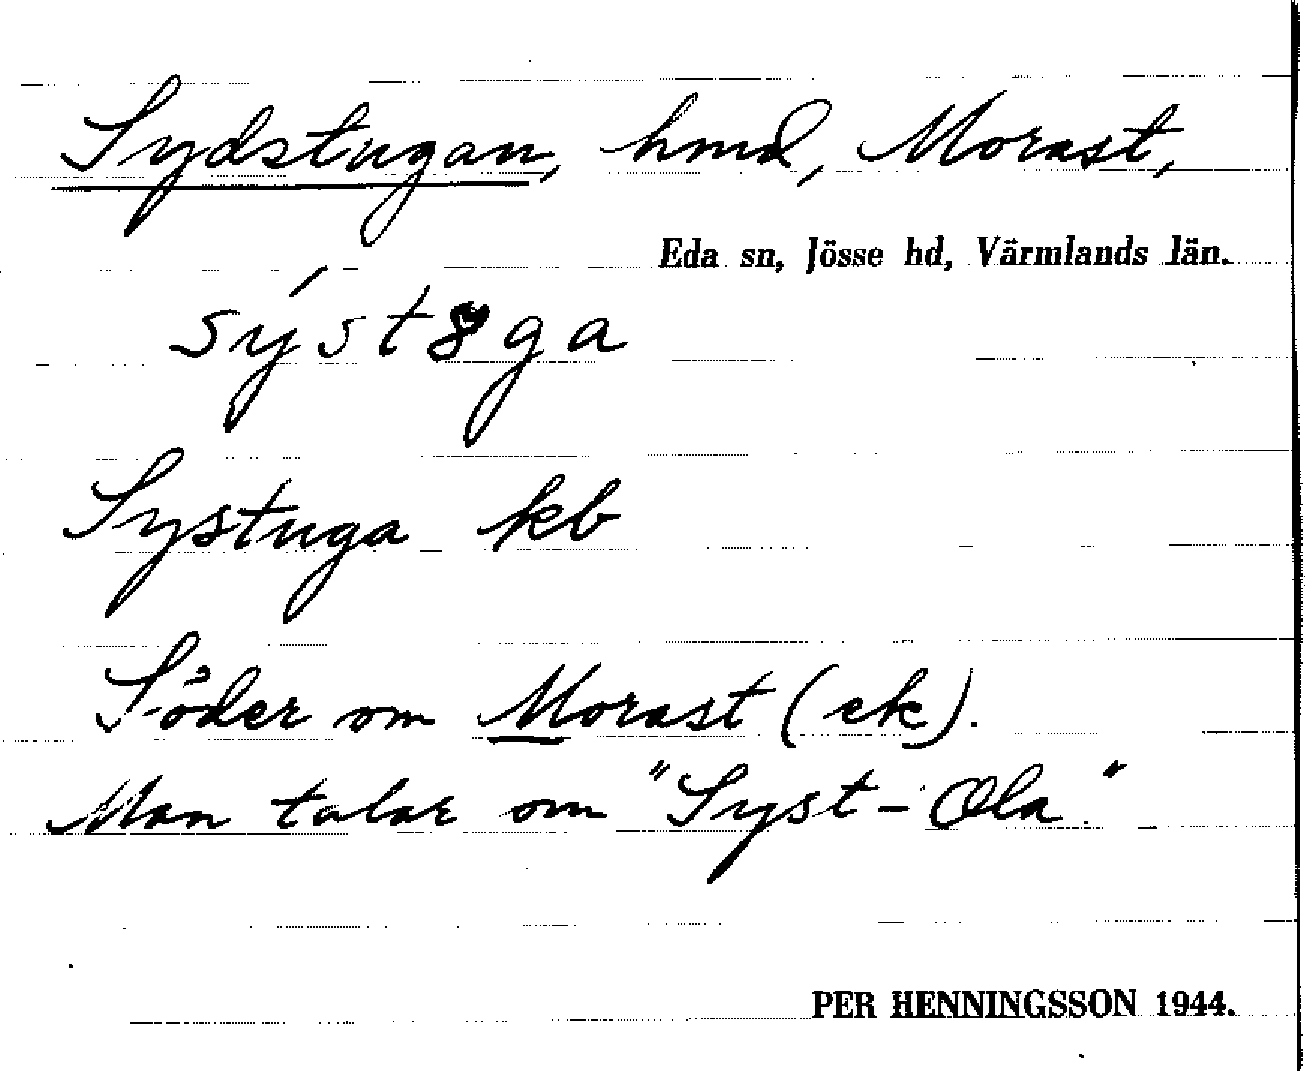 Sydstugan, hmd, Morast,
Eda sn, Jösse hd, Värmlands län.
sýst8ga
Systuga kb
Söder om Morast (ek).
Man talar om "Syst-Ola."
PER HENNINGSSON 1944.